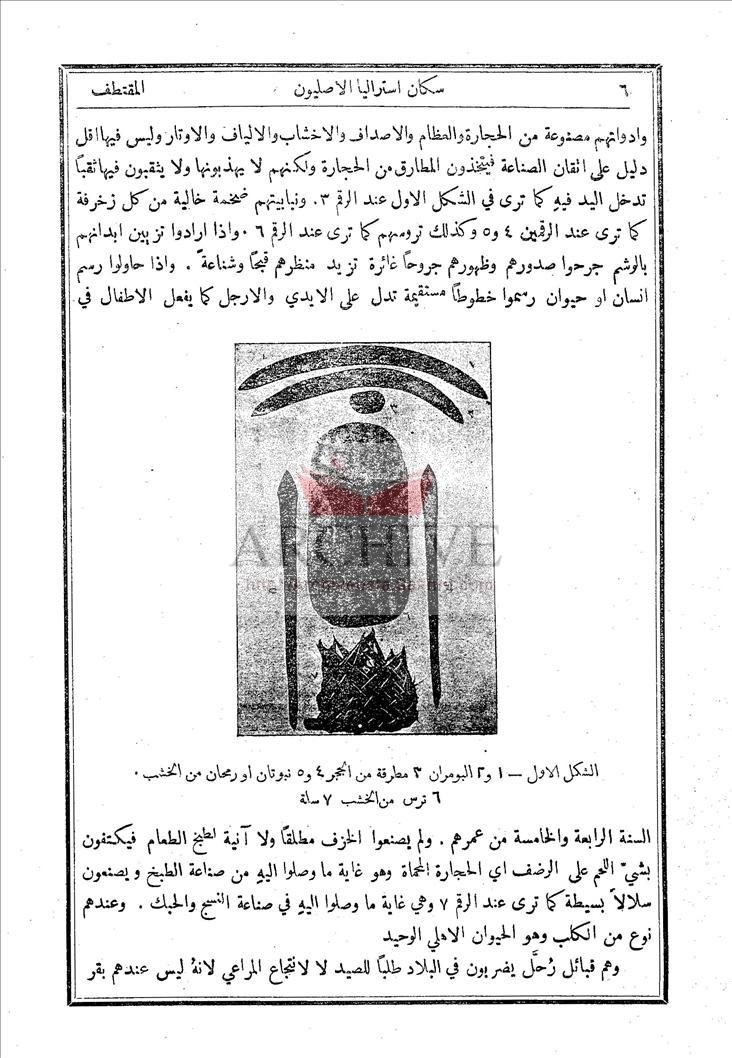 ٦ سكان استراليا الاصليون المقتطف
وادواتهم مصنوعة من الحجارة والعظام والاصداف والاخشاب والالياف والاوتار وليس فيها اقل
دليل على اتقان الصناعة فيتخذون المطارق من الحجارة ولكنهم لا يهذبونها ولا يثقبون فيها ثقبًا
تدخل اليد فيهِ كما ترى في الشكل الاول عند الرقم ٣. ونبابيتهم ضخمة خالية من كل زخرفة
كما ترى عند الرقمين ٤ و٥ وكذلك تروسهم كما ترى عند الرقم ٦. واذا ارادوا تزيين ابدانهم
بالوشم جرحوا صدورهم وظهورهم جروحًا غائرة تزيد منظرهم قبحًا وشناعةً. واذا حاولوا رسم
انسان او حيوان رسموا خطوطًا مستقيمة تدل على الايدي والارجل كما يفعل الاطفال في
١
٢
٣
ARCHIVE
الشكل الاول — ١ و٢ البومران ٣ مطرقة من الحجر ٤ و٥ نبوتان او رمحان من الخشب.
٦ ترس من الخشب ٧ سلة
السنة الرابعة والخامسة من عمرهم. ولم يصنعوا الخزف مطلقًا ولا آنية لطبخ الطعام فيكتفون
بشيّ اللحم على الرضف اي الحجارة المحماة وهو غاية ما وصلوا اليهِ من صناعة الطبخ ويصنعون
سلالاً بسيطة كما ترى عند الرقم ٧ وهي غاية ما وصلوا اليهِ في صناعة النسج والحبك. وعندهم
نوع من الكلب وهو الحيوان الاهلي الوحيد
وهم قبائل رُحَّل يضربون في البلاد طلبًا للصيد لا لانتجاع المراعي لانهُ ليس عندهم بقر